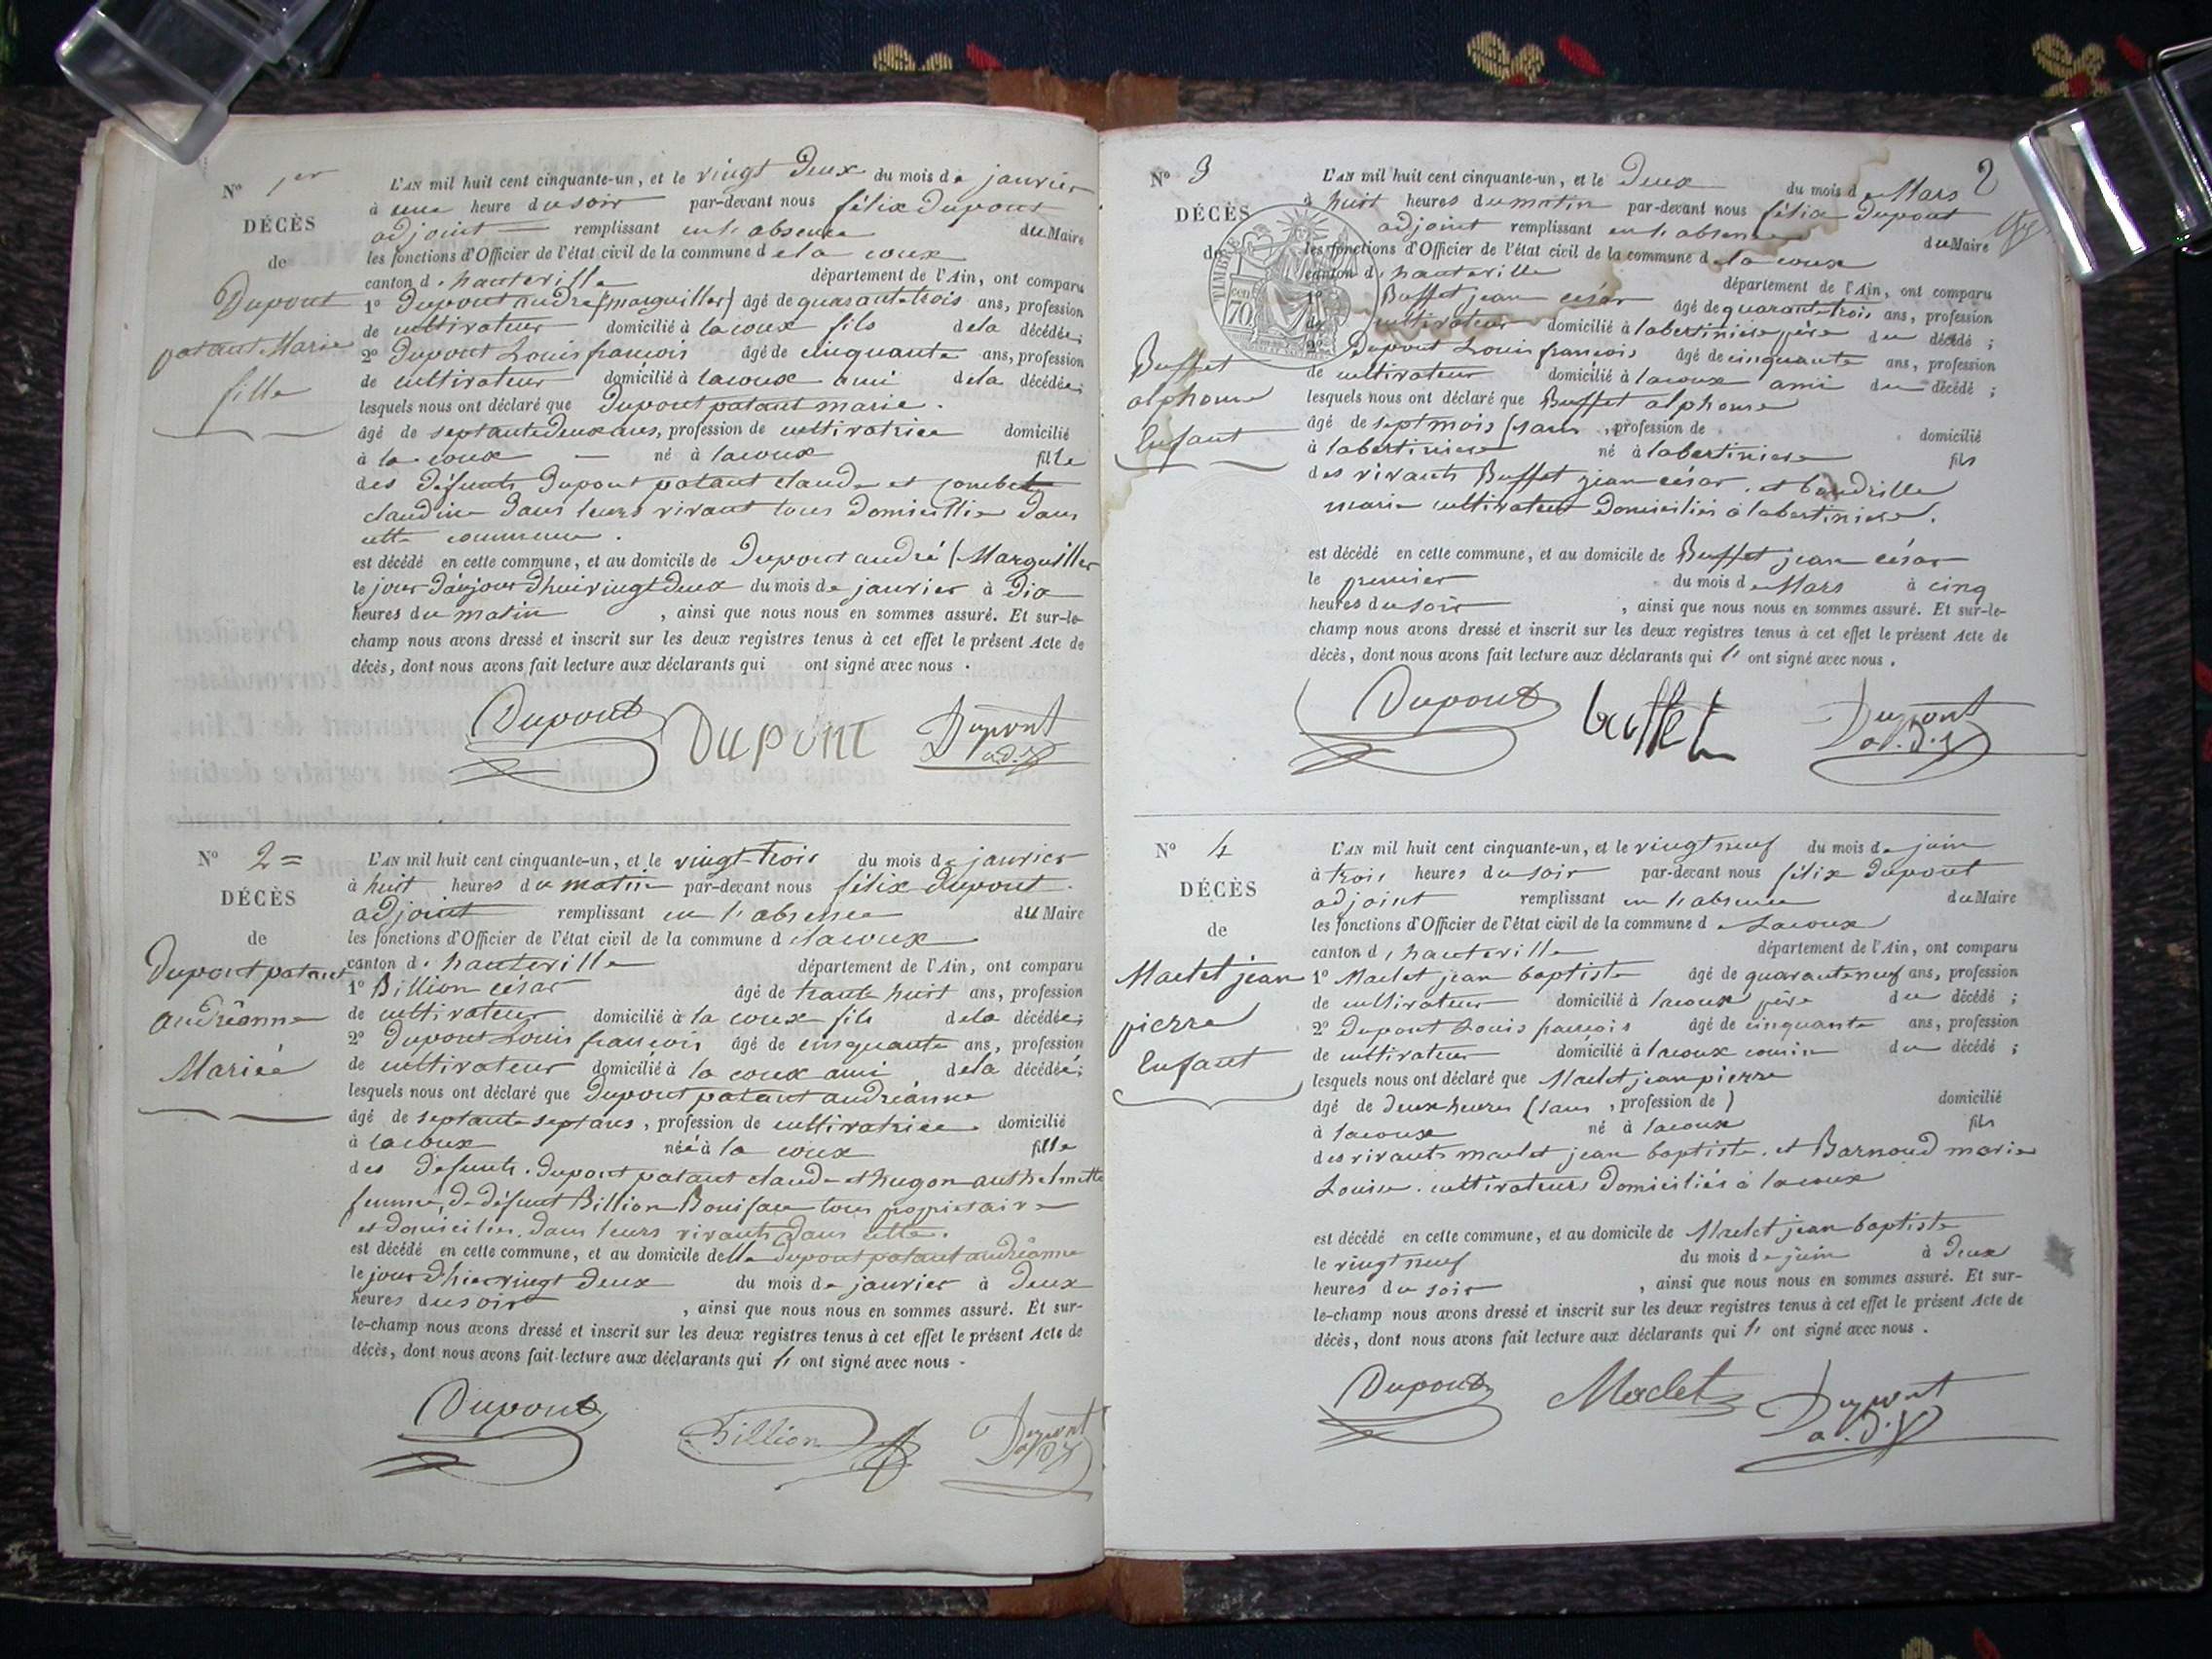 N° 1er
DÉCÈS
de
Dupont
patant Marie
fille
L'AN mil huit cent cinquante-un, et le vingt deux du mois de janvier
à une heure du soir par-devant nous félix dupont
adjoint remplissant en l'absence du Maire
les fonctions d'Officier de l'état civil de la commune de la coux
canton d. hauteville département de l'Ain, ont comparu
1° Dupont andré (marguiller) âgé de quarante trois ans, profession
de cultivateur domicilié à lacoux fils dela décédée;
2° Dupont Louis francois âgé de cinquante ans, profession
de cultivateur domicilié à lacoux ami dela décédée;
lesquels nous ont déclaré que dupont patant marie.
âgé de septante deux ans, profession de cultivatrice domicilié
à la coux — né à lacoux fille
des défunts Dupont patant claude et joubet
claudine dans leurs vivant tous domicillié dans
cette commune.
est décédé en cette commune, et au domicile de Dupont andré (Marguiller
le jour d'aujourdhui vingt deux du mois de janvier à dix
heures du matin , ainsi que nous nous en sommes assuré. Et sur-le-
champ nous avons dressé et inscrit sur les deux registres tenus à cet effet le présent Acte de
décès, dont nous avons fait lecture aux déclarants qui ont signé avec nous .
Dupont DUPONT Dupont adj
N° 2=
DÉCÈS
de
Dupont patant
andréanne
Mariée
L'AN mil huit cent cinquante-un, et le vingt trois du mois de janvier
à huit heures du matin par-devant nous félix dupont.
adjoint remplissant en l'absence du Maire
les fonctions d'Officier de l'état civil de la commune d elacoux
canton d. hauteville département de l'Ain, ont comparu
1° Billion césar âgé de trante huit ans, profession
de cultivateur domicilié à la coux fils dela décédée;
2° Dupont Louis francois âgé de cinquante ans, profession
de cultivateur domicilié à la coux ami dela décédée;
lesquels nous ont déclaré que Dupont patant andréanne
âgé de septante sept ans, profession de cultivatrice domicilié
à lacoux née à la coux fille
des défunts. dupont patant claude et hugon anthelmette
femme, de défunt Billion Boniface tous propietaire
et domiciliés. dans leurs vivants dans cette.
est décédé en cette commune, et au domicile delle Dupont patant andréanne
le jour d'hier vingt deux du mois de janvier à deux
heures du soir , ainsi que nous nous en sommes assuré. Et sur-
le-champ nous avons dressé et inscrit sur les deux registres tenus à cet effet le présent Acte de
décès, dont nous avons fait lecture aux déclarants qui ont signé avec nous .
Dupont Billion Dupont adj
2
N° 3
DÉCÈS
de
TIMBRE
70
Buffet
alphonse
Enfant
L'AN mil huit cent cinquante-un, et le deux du mois de Mars
à huit heures du matin par-devant nous félix dupont
adjoint remplissant en l'absence du Maire
les fonctions d'Officier de l'état civil de la commune de la coux
canton d. hauteville département de l'Ain, ont comparu
1° Buffet jean césar âgé de quarante trois ans, profession
de cultivateur domicilié à labertiniere père du décédé ;
2° Dupont Louis francois âgé de cinquante ans, profession
de cultivateur domicilié à lacoux ami du décédé ;
lesquels nous ont déclaré que Buffet alphonse
âgé de sept mois (sans , profession de . domicilié
à labertiniere né à labertiniere fils
des vivants Buffet jean césar. et baudrille
marie cultivateurs domiciliés à labertiniere.
est décédé en cette commune, et au domicile de Buffet jean césar
le premier du mois de Mars à cinq
heures du soir , ainsi que nous nous en sommes assuré. Et sur-le-
champ nous avons dressé et inscrit sur les deux registres tenus à cet effet le présent Acte de
décès, dont nous avons fait lecture aux déclarants qui ont signé avec nous .
Dupont buffet Dupont adj
N° 4
DÉCÈS
de
Maclet jean
pierre
Enfant
L'AN mil huit cent cinquante-un, et le vingt neuf du mois de juin
à trois heures du soir par-devant nous félix dupont
adjoint remplissant en l'absence du Maire
les fonctions d'Officier de l'état civil de la commune d e Lacoux
canton d. hauteville département de l'Ain, ont comparu
1° Maclet jean baptiste âgé de quarante neuf ans, profession
de cultivateur domicilié à lacoux père du décédé ;
2° Dupont Louis francois âgé de cinquante ans, profession
de cultivateur domicilié à lacoux cousin du décédé ;
lesquels nous ont déclaré que Maclet jean pierre
âgé de deux heures (sans , profession de ) domicilié
à lacoux né à lacoux fils
des vivants maclet jean baptiste. et Barnoud marie
Louise. cultivateurs domiciliés à lacoux
est décédé en cette commune, et au domicile de Maclet jean baptiste
le vingt neuf du mois de juin à deux
heures du soir , ainsi que nous nous en sommes assuré. Et sur-
le-champ nous avons dressé et inscrit sur les deux registres tenus à cet effet le présent Acte de
décès, dont nous avons fait lecture aux déclarants qui ont signé avec nous .
Dupont Maclet Dupont adj